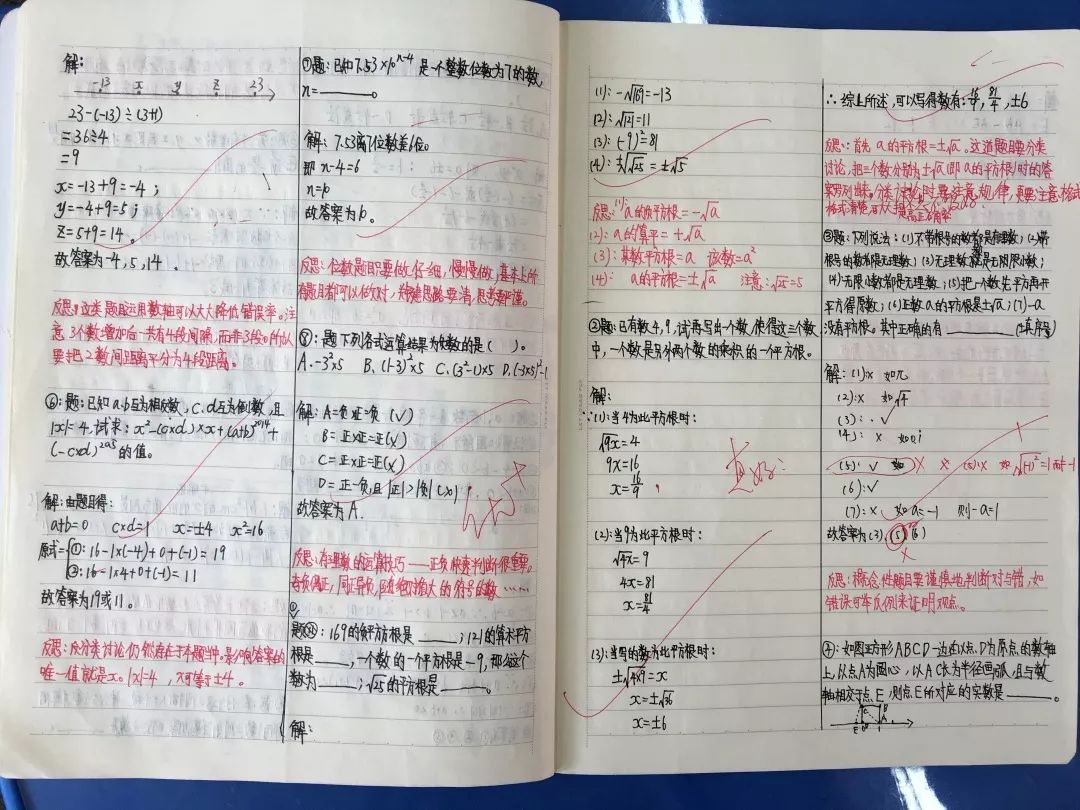 解:
-13 x y z 23
23-(-13)÷(3+1)
=36÷4
=9
x=-13+9=-4;
y=-4+9=5;
z=5+9=14。
故答案为-4,5,14.
反思:这类题目运用数轴可以大大降低错误率。注
意3个数增加后一共有4段间隔,而非3段。所以
要把2数间距离平分为4段距离。
⑥:题:已知a.b互为相反数,c.d互为倒数,且
|x|=4.试求:x²-(c×d)×x+(a+b)²⁰¹⁴+
(-c×d)²⁰¹⁵的值。
解:由题目得:
a+b=0 c×d=1 x=±4 x²=16
原式=①:16-1×(-4)+0+(-1)=19
②:16-1×4+0+(-1)=11
故答案为19或11。
反思:分类讨论仍然存在于本题当中。影响答案的
唯一值就是x。|x|=4,不可等于±4。
⑦题:已知7.53×10ⁿ⁻⁴是一个整数位数为7的数,
n=______。
解:7.53离7位数差6位。
即n-4=6
n=10
故答案为10。
反思:位数题目要做仔细,慢慢做,基本上所
有题目都可以做对,关键思路要清,思考要严谨。
⑧:题下列各式运算结果为负数的是( )。
A.-3²×5 B.(1-3)²×5 C.(3²-1)×5 D.(-3×5)²-1
解:A=负×正=负(√)
B=正×正=正(×)
C=正×正=正(×)
D=正-负,且|正|>|负|(×)
故答案为A.
反思:有理数的运算技巧——正负快速判断很重要,
题①:169的负平方根是____;121的算术平方
根是____,一个数的一个平方根是-9,那么这个
数为____;√25的平方根是____。
解:
(1):-√169=-13
(2):√121=11
(3):(-9)²=81
(4):±√√25=±√5
反思:(1)a的负平方根=-√a
(2):a的算平=+√a
(3):某数平方根=a 该数=a²
(4):a的平方根=±√a 注意:√25=5
②题:已有数4,9,试再写出一个数,使得这三个数
中,一个数是另外两个数的乘积的一个平方根。
解:
(1):当4为此平方根时:
√9x=4
9x=16
x=16/9
真好:
(2):当9为此平方根时:
√4x=9
4x=81
x=81/4
(3):当写的数为此平方根时:
±√4×9=x
x=±√36
x=±6
∴综上所述,可以写得数有:16/9,81/4,±6
反思:首先a的平方根=±√a。这道题目要分类
讨论,把三个数分别为±√a(即a的平方根)时的答
案罗列出来。分类讨论时要注意规律,更要注意格式
③题:下列说法:(1)不带根号的数都是有理数;(2)带
根号的数都是无理数;(3)无理数都是无限小数;
(4)无限小数都是无理数;(5)把一个数先平方再开
平方得原数;(6)正数a的平方根是±√a;(7)-a
没有平方根。其中正确的有______(填序号)
解:(1):× 如π
(2):× 如√4
(3):√
(4):× 如0.i
(5):√ 如 × × (5):× 如√(-1)²=1而非-1
(6):√
(7):× 如a=-1 则-a=1
故答案为(3),(5)(6)
反思:概念性题目要谨慎地判断对与错,如
错误可举反例来证明观点。
④:如图正方形ABCD一边在以点D为原点的数轴
上,以点A为圆心,以AC长为半径画弧,且与数
轴相交于点E,则点E所对应的实数是______。